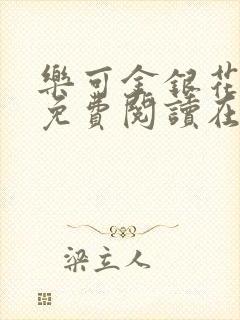 樂可金銀花
免費閱讀在
梁立人